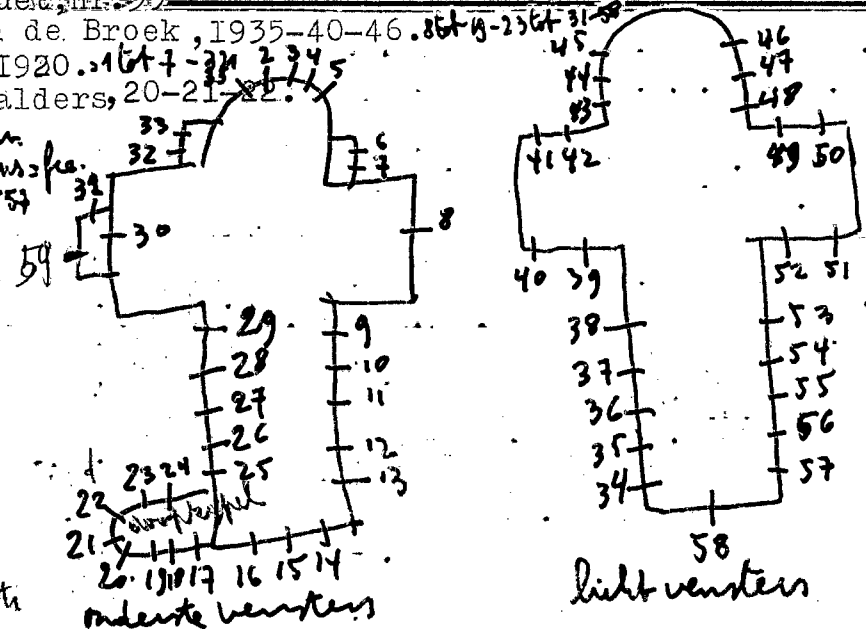 de Broek ,1935-40-46. 8tot 19-23tot 31-58
1920. 1tot 7-
alders, 20-21-22.
2 3 4 5
33
32
6
7
31
57
30
8
59
29
28
27
26
25
9
10
11
12
13
22 23 24
doopkapel
21
20 19 18 17 16 15 14
onderste vensters
45
44
43
46
47
48
41 42
49 50
40 39
52 51
38
37
36
35
34
53
54
55
56
57
58
licht vensters